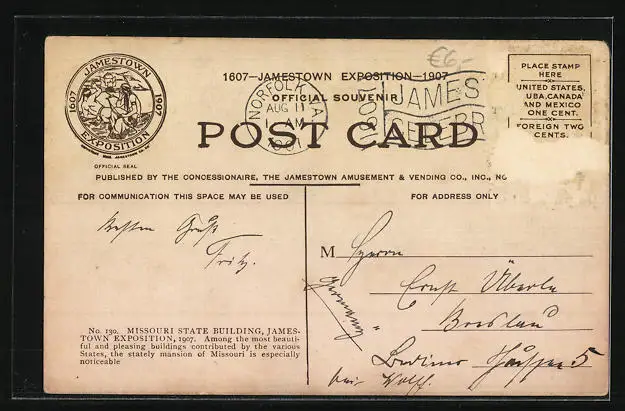 €6,-
JAMESTOWN
1607 1907
EXPOSITION
OFFICIAL SEAL
1607—JAMESTOWN EXPOSITION—1907
OFFICIAL SOUVENIR
NORFOLK VA.
AUG 11
AM
1907
JAMES
POST CARD
PLACE STAMP
HERE
UNITED STATES,
UBA, CANADA
AND MEXICO
ONE CENT.
FOREIGN TWO
CENTS.
PUBLISHED BY THE CONCESSIONAIRE, THE JAMESTOWN AMUSEMENT & VENDING CO., INC., NO
FOR COMMUNICATION THIS SPACE MAY BE USED
FOR ADDRESS ONLY
Besten Gruß
Fritz.
M Herrn
Ernst Überle
Breslau
Germany
5
bei Wolff.
No. 130. MISSOURI STATE BUILDING, JAMES-
TOWN EXPOSITION, 1907. Among the most beauti-
ful and pleasing buildings contributed by the various
States, the stately mansion of Missouri is especially
noticeable